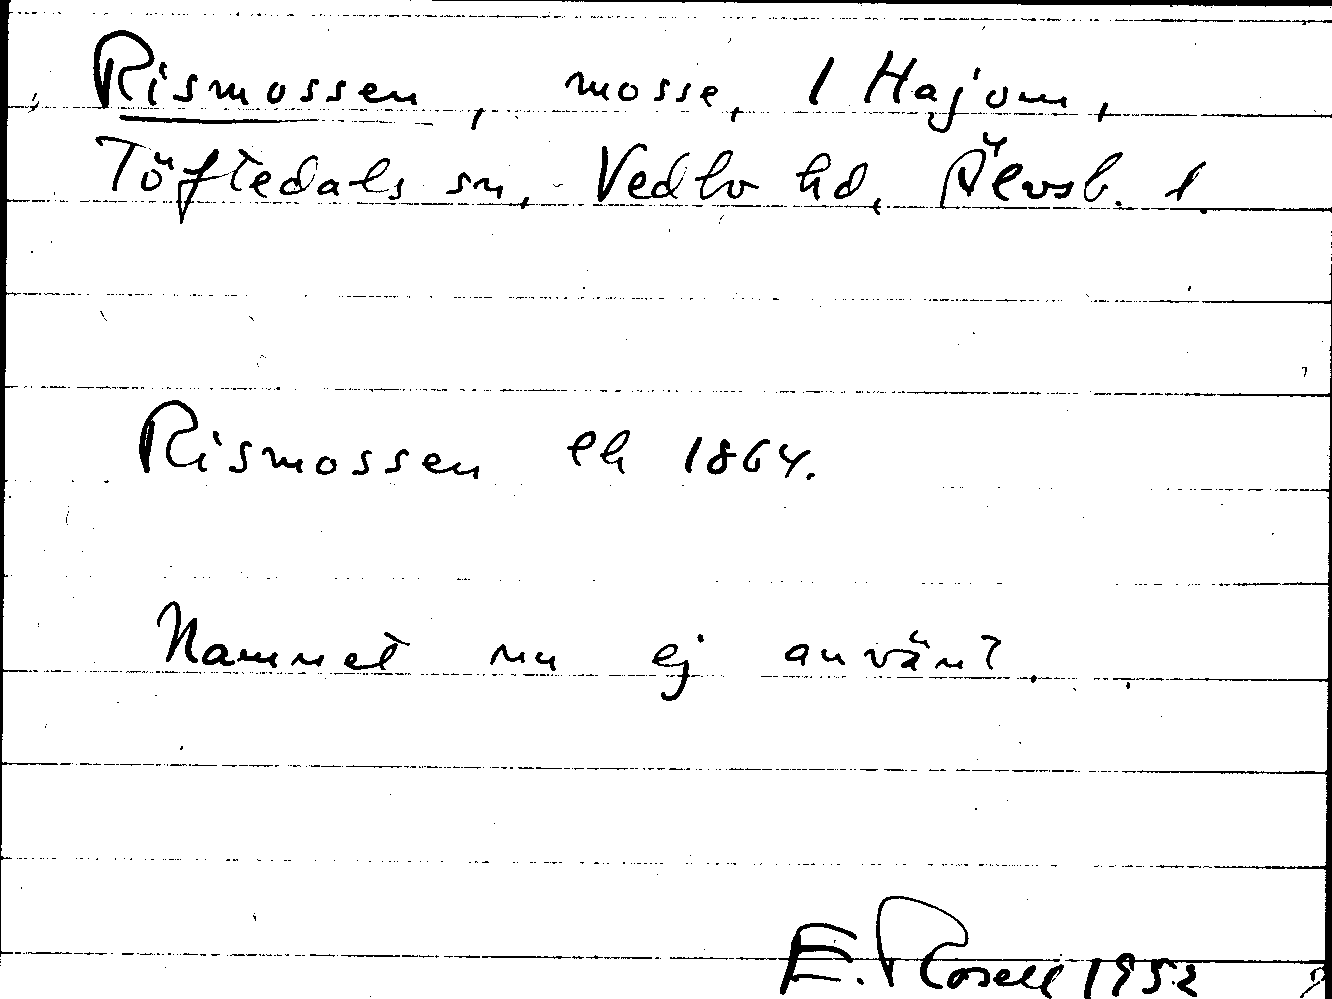 Rismossen, mosse, 1 Hajom,
Töftedals sn, Vedbo hd, Älvsb. l.
Rismossen Ek 1864.
Namnet nu ej använt.
E. Rosell 1952